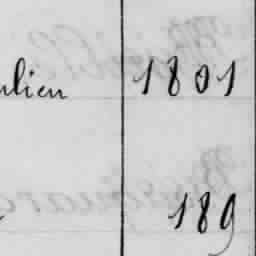 ulien 1801
189